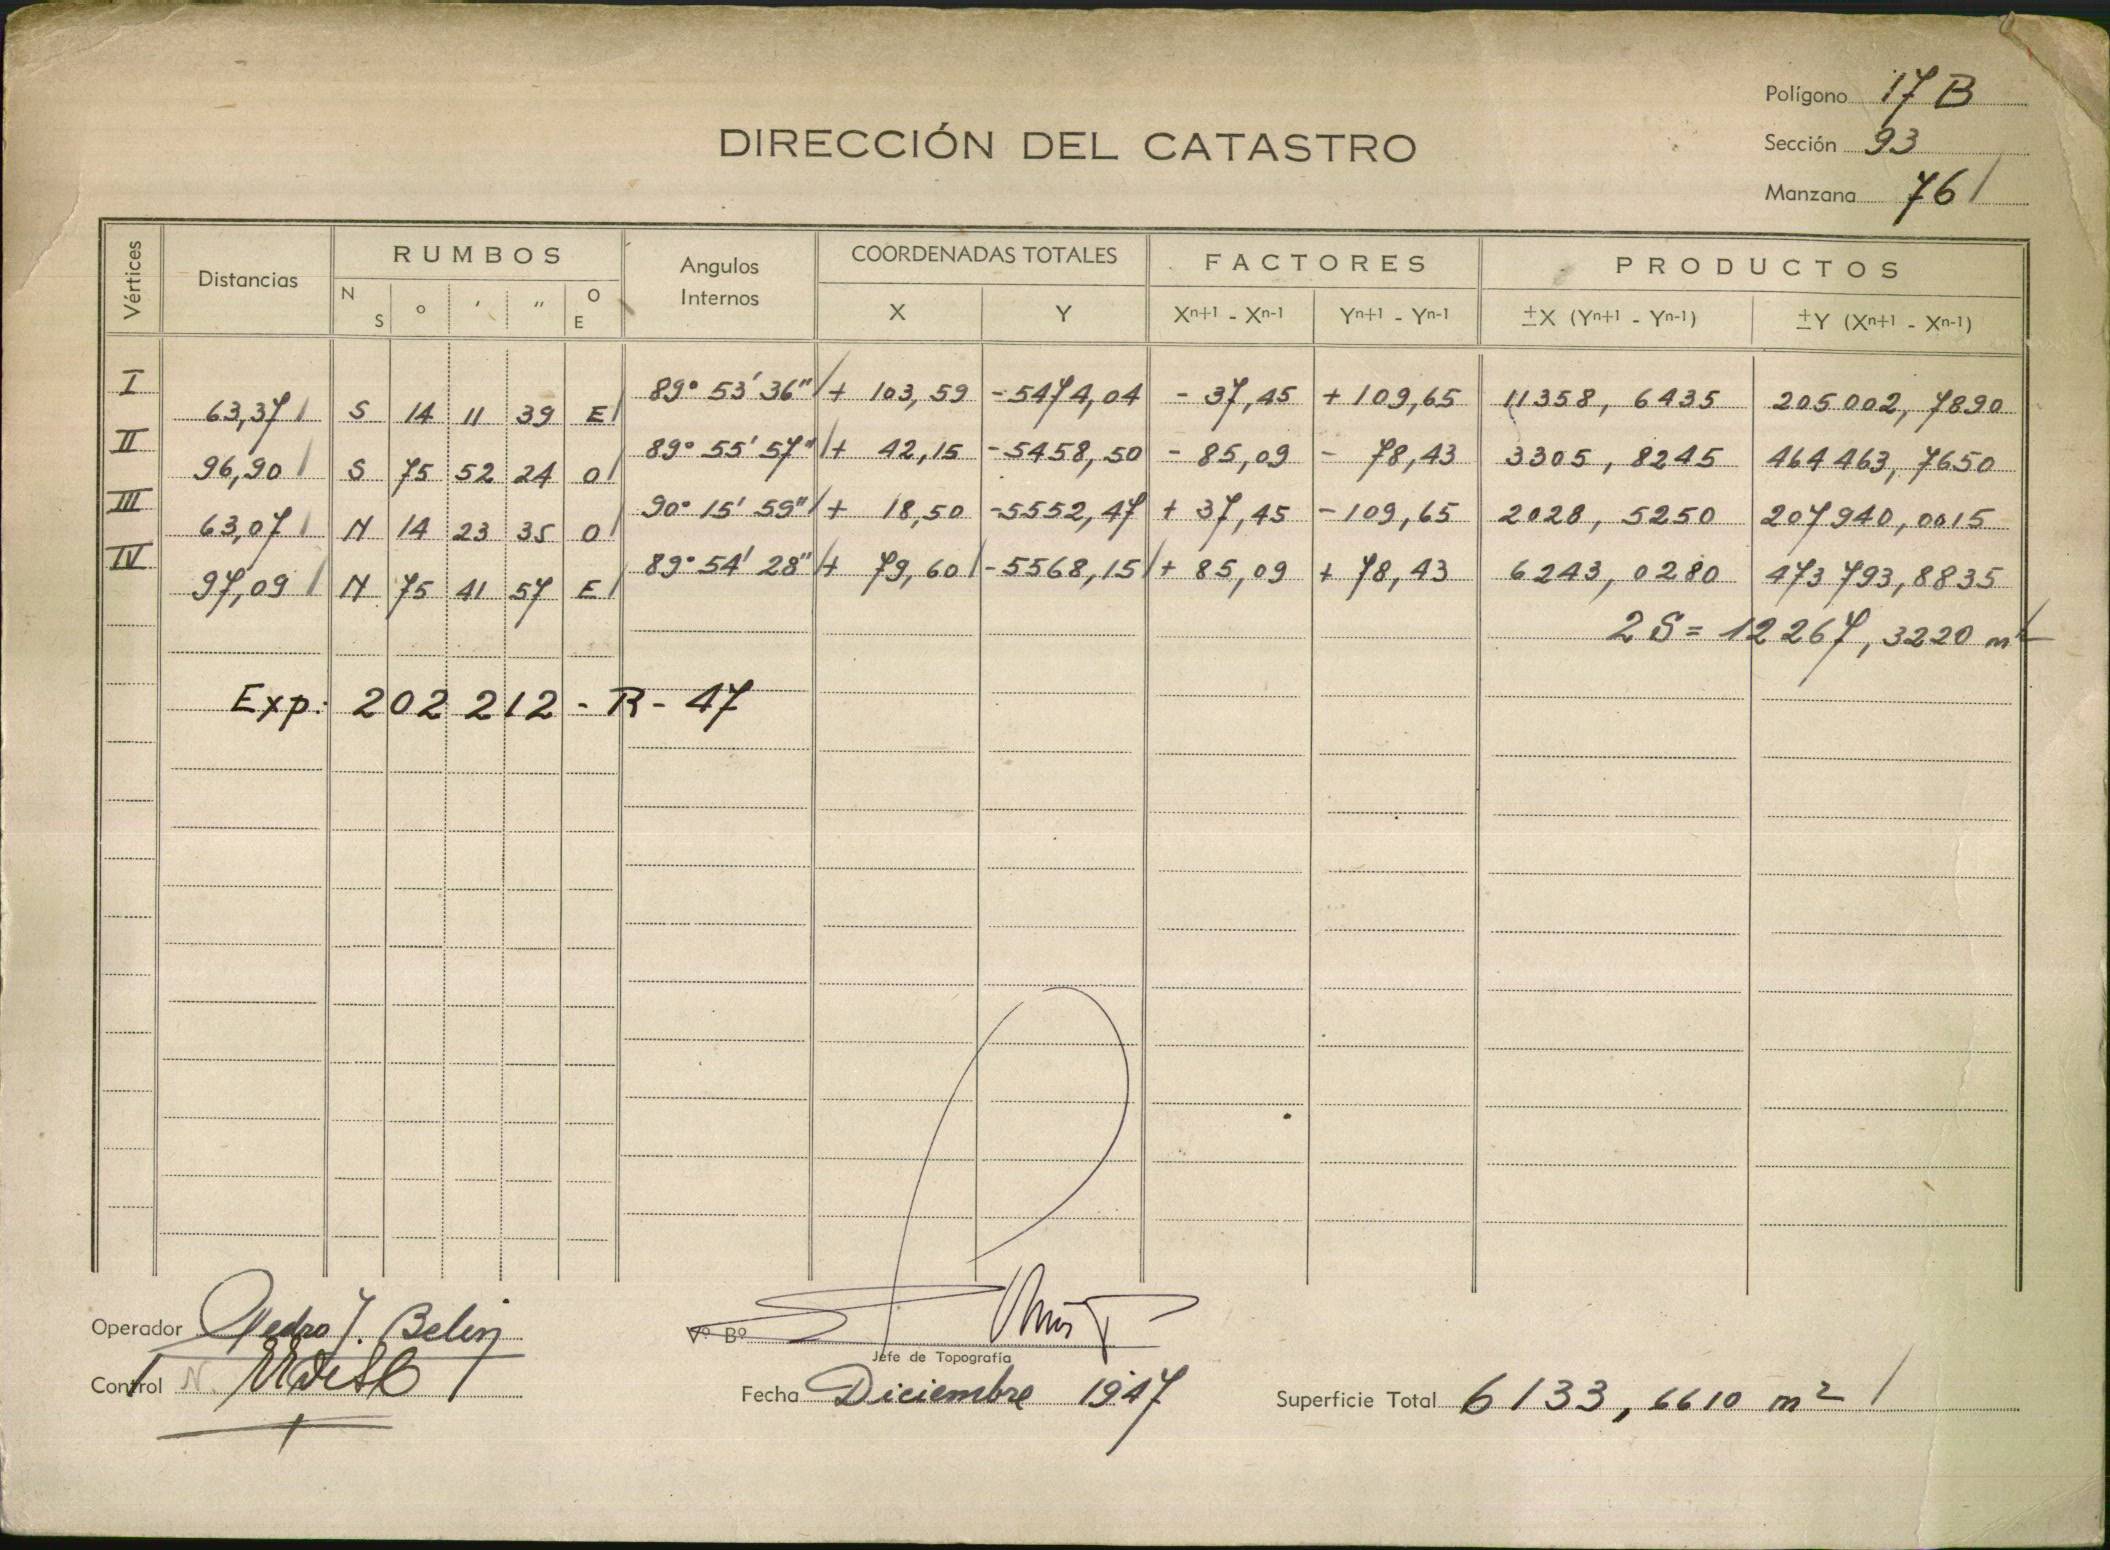 Polígono 17 B
DIRECCIÓN DEL CATASTRO
Sección 93
Manzana 76 /
Vértices Distancias RUMBOS Angulos Internos COORDENADAS TOTALES FACTORES PRODUCTOS
N S ° ' " O E X Y Xn+1 - Xn-1 Yn+1 - Yn-1 ±X (Yn+1 - Yn-1) ±Y (Xn+1 - Xn-1)
I 89° 53' 36" / + 103,59 -5474,04 - 37,45 + 109,65 11358, 6435 205002, 7890
63,37 / S 14 11 39 E /
II 89° 55' 57" / + 42,15 -5458,50 - 85,09 - 78,43 3305, 8245 464463, 7650
96,90 / S 75 52 24 O /
III 90° 15' 59" / + 18,50 -5552,47 + 37,45 -109,65 2028, 5250 207940, 0015
63,07 / N 14 23 35 O /
IV 89° 54' 28" / + 79,60 / -5568,15 / + 85,09 + 78,43 6243, 0280 473793, 8835
97,09 / N 75 41 57 E /
2 S = 12267, 3220 m²
Exp: 202212 - R - 47
Operador Pedro J. Belin
Vº Bº
Jefe de Topografía
Control N.
Fecha Diciembre 1947
Superficie Total 6133, 6610 m² /